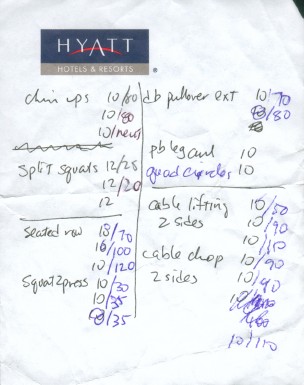 HYATT
HOTELS & RESORTS
®
chin ups 10/80
10/80
10/neus
split squats 12/25
12/20
12
seated row 13/70
16/100
10/120
Squat2press 10/30
10/35
/35
db pullover ext 10/70
/80
pb leg curl 10
quad 10
cable lifting 10/50
2 sides 10/90
10/110
cable chop 10/90
2 sides 10/90
10/110